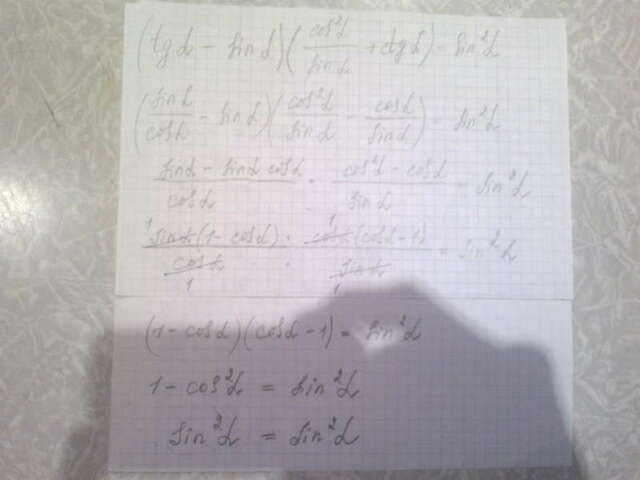 (tg α − sin α)(cos²α/sin α + ctg α) = sin²α
(sin α/cos α − sin α)(cos²α/sin α − cos α/sin α) = sin²α
sin α − sin α cos α/cos α · cos²α − cos α/sin α = sin²α
sin α(1 − cos α)/cos α · cos α(cos α − 1)/sin α = sin²α
(1 − cos α)(cos α − 1) = sin²α
1 − cos²α = sin²α
sin²α = sin²α